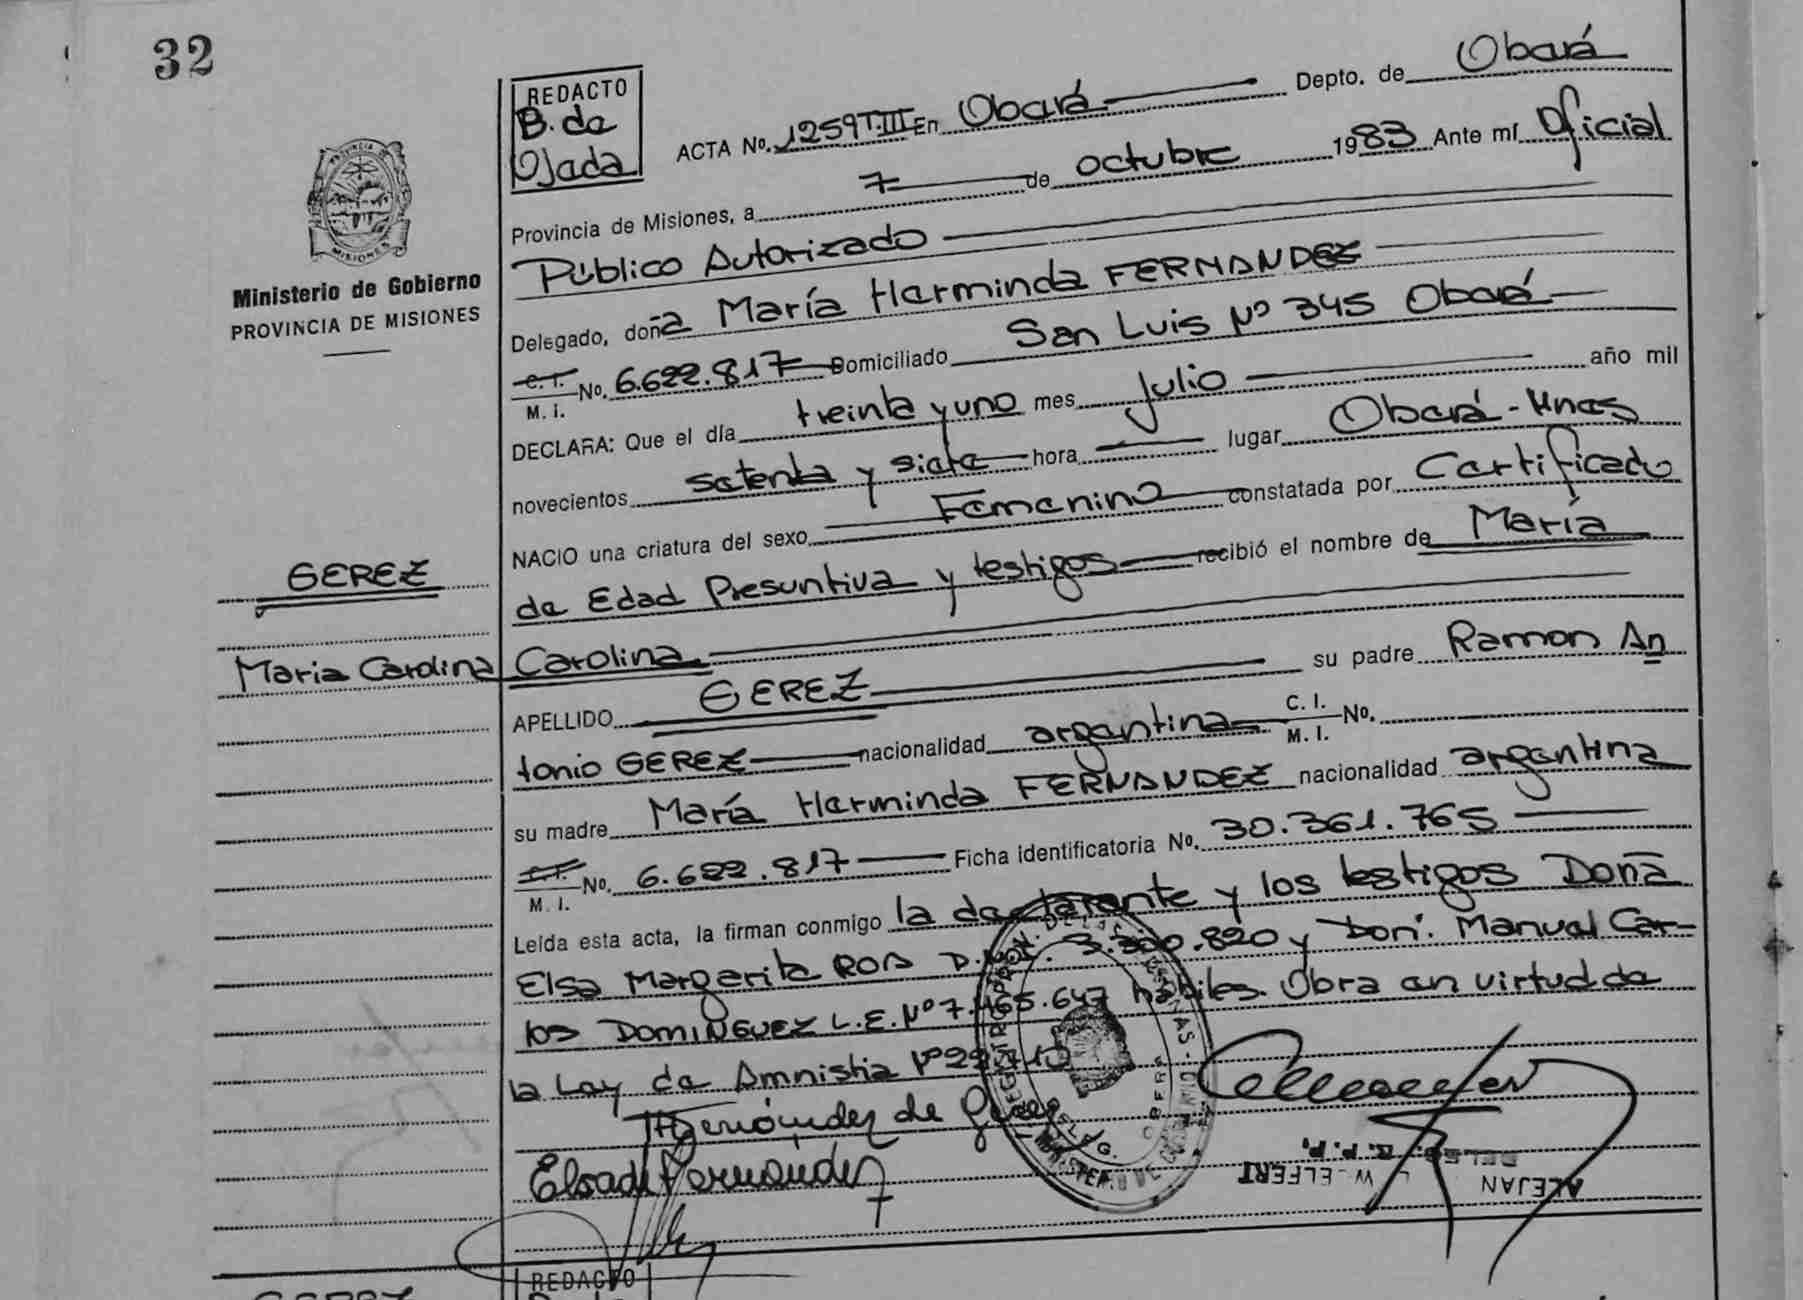 32
REDACTO
B. de
Ojeda
ACTA No. 1259 T.III En Oberá Depto. de Oberá
Provincia de Misiones, a 7 de octubre 1983 Ante mí Oficial
Público Autorizado
Delegado, doña María Herminda FERNANDEZ
C.I.
M. I. No. 6.622.817 Domiciliado San Luis Nº 345 Oberá
DECLARA: Que el día treinta y uno mes Julio año mil
novecientos setenta y siete hora lugar Oberá - Mnes
NACIO una criatura del sexo Femenino constatada por Certificado
de Edad Presuntiva y testigos recibió el nombre de María
Carolina
APELLIDO GEREZ su padre Ramon An
tonio GEREZ nacionalidad argentina C. I.
M. I. No.
su madre María Herminda FERNANDEZ nacionalidad argentina
C.I.
M. I. No. 6.622.817 Ficha identificatoria No. 30.361.765
Leída esta acta, la firman conmigo la declarante y los testigos Doña
Elsa Margarita ROA D.N.I. 3.300.820 y Don. Manuel Car-
los DOMINGUEZ L.E. Nº 7.465.647 hábiles. Obra en virtud de
la Ley de Amnistia Nº
Fernández de Gerez
Elsa de Fernández
PROVINCIA DE
MISIONES
Ministerio de Gobierno
PROVINCIA DE MISIONES
GEREZ
Maria Carolina
OBERA
ALEJAN W. ELFERT
REDACTO